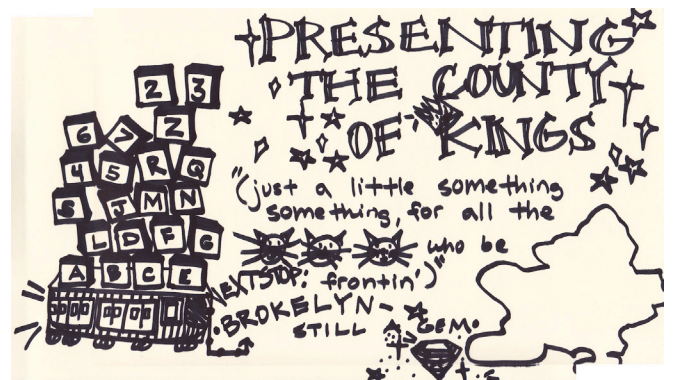 PRESENTING
THE COUNTY
OF KINGS
"(just a little something
something, for all the
who be
frontin')"
2 3
6 7 Z
4 5 R Q
S J M N
L D F G
A B C E
NEXT STOP:
BROKELYN-
STILL
A GEM.